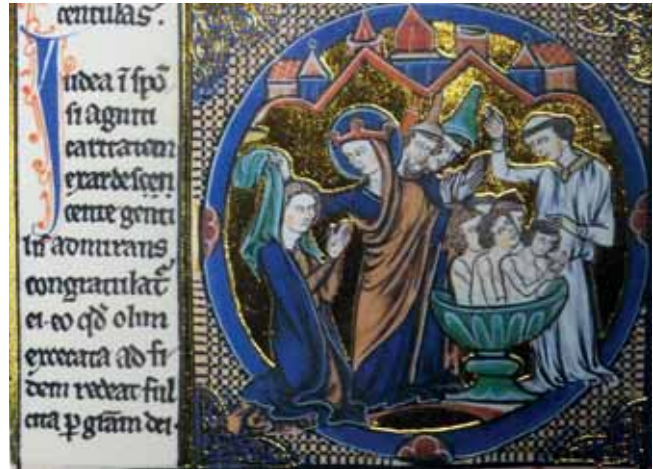 centulas.
Iudea i spo
si agniti
caritatem
exardescen
cente genti
lis admirans
congratulat
ei. eo qd olim
execata ad fi
dem redeat ful
cita p gram dei.